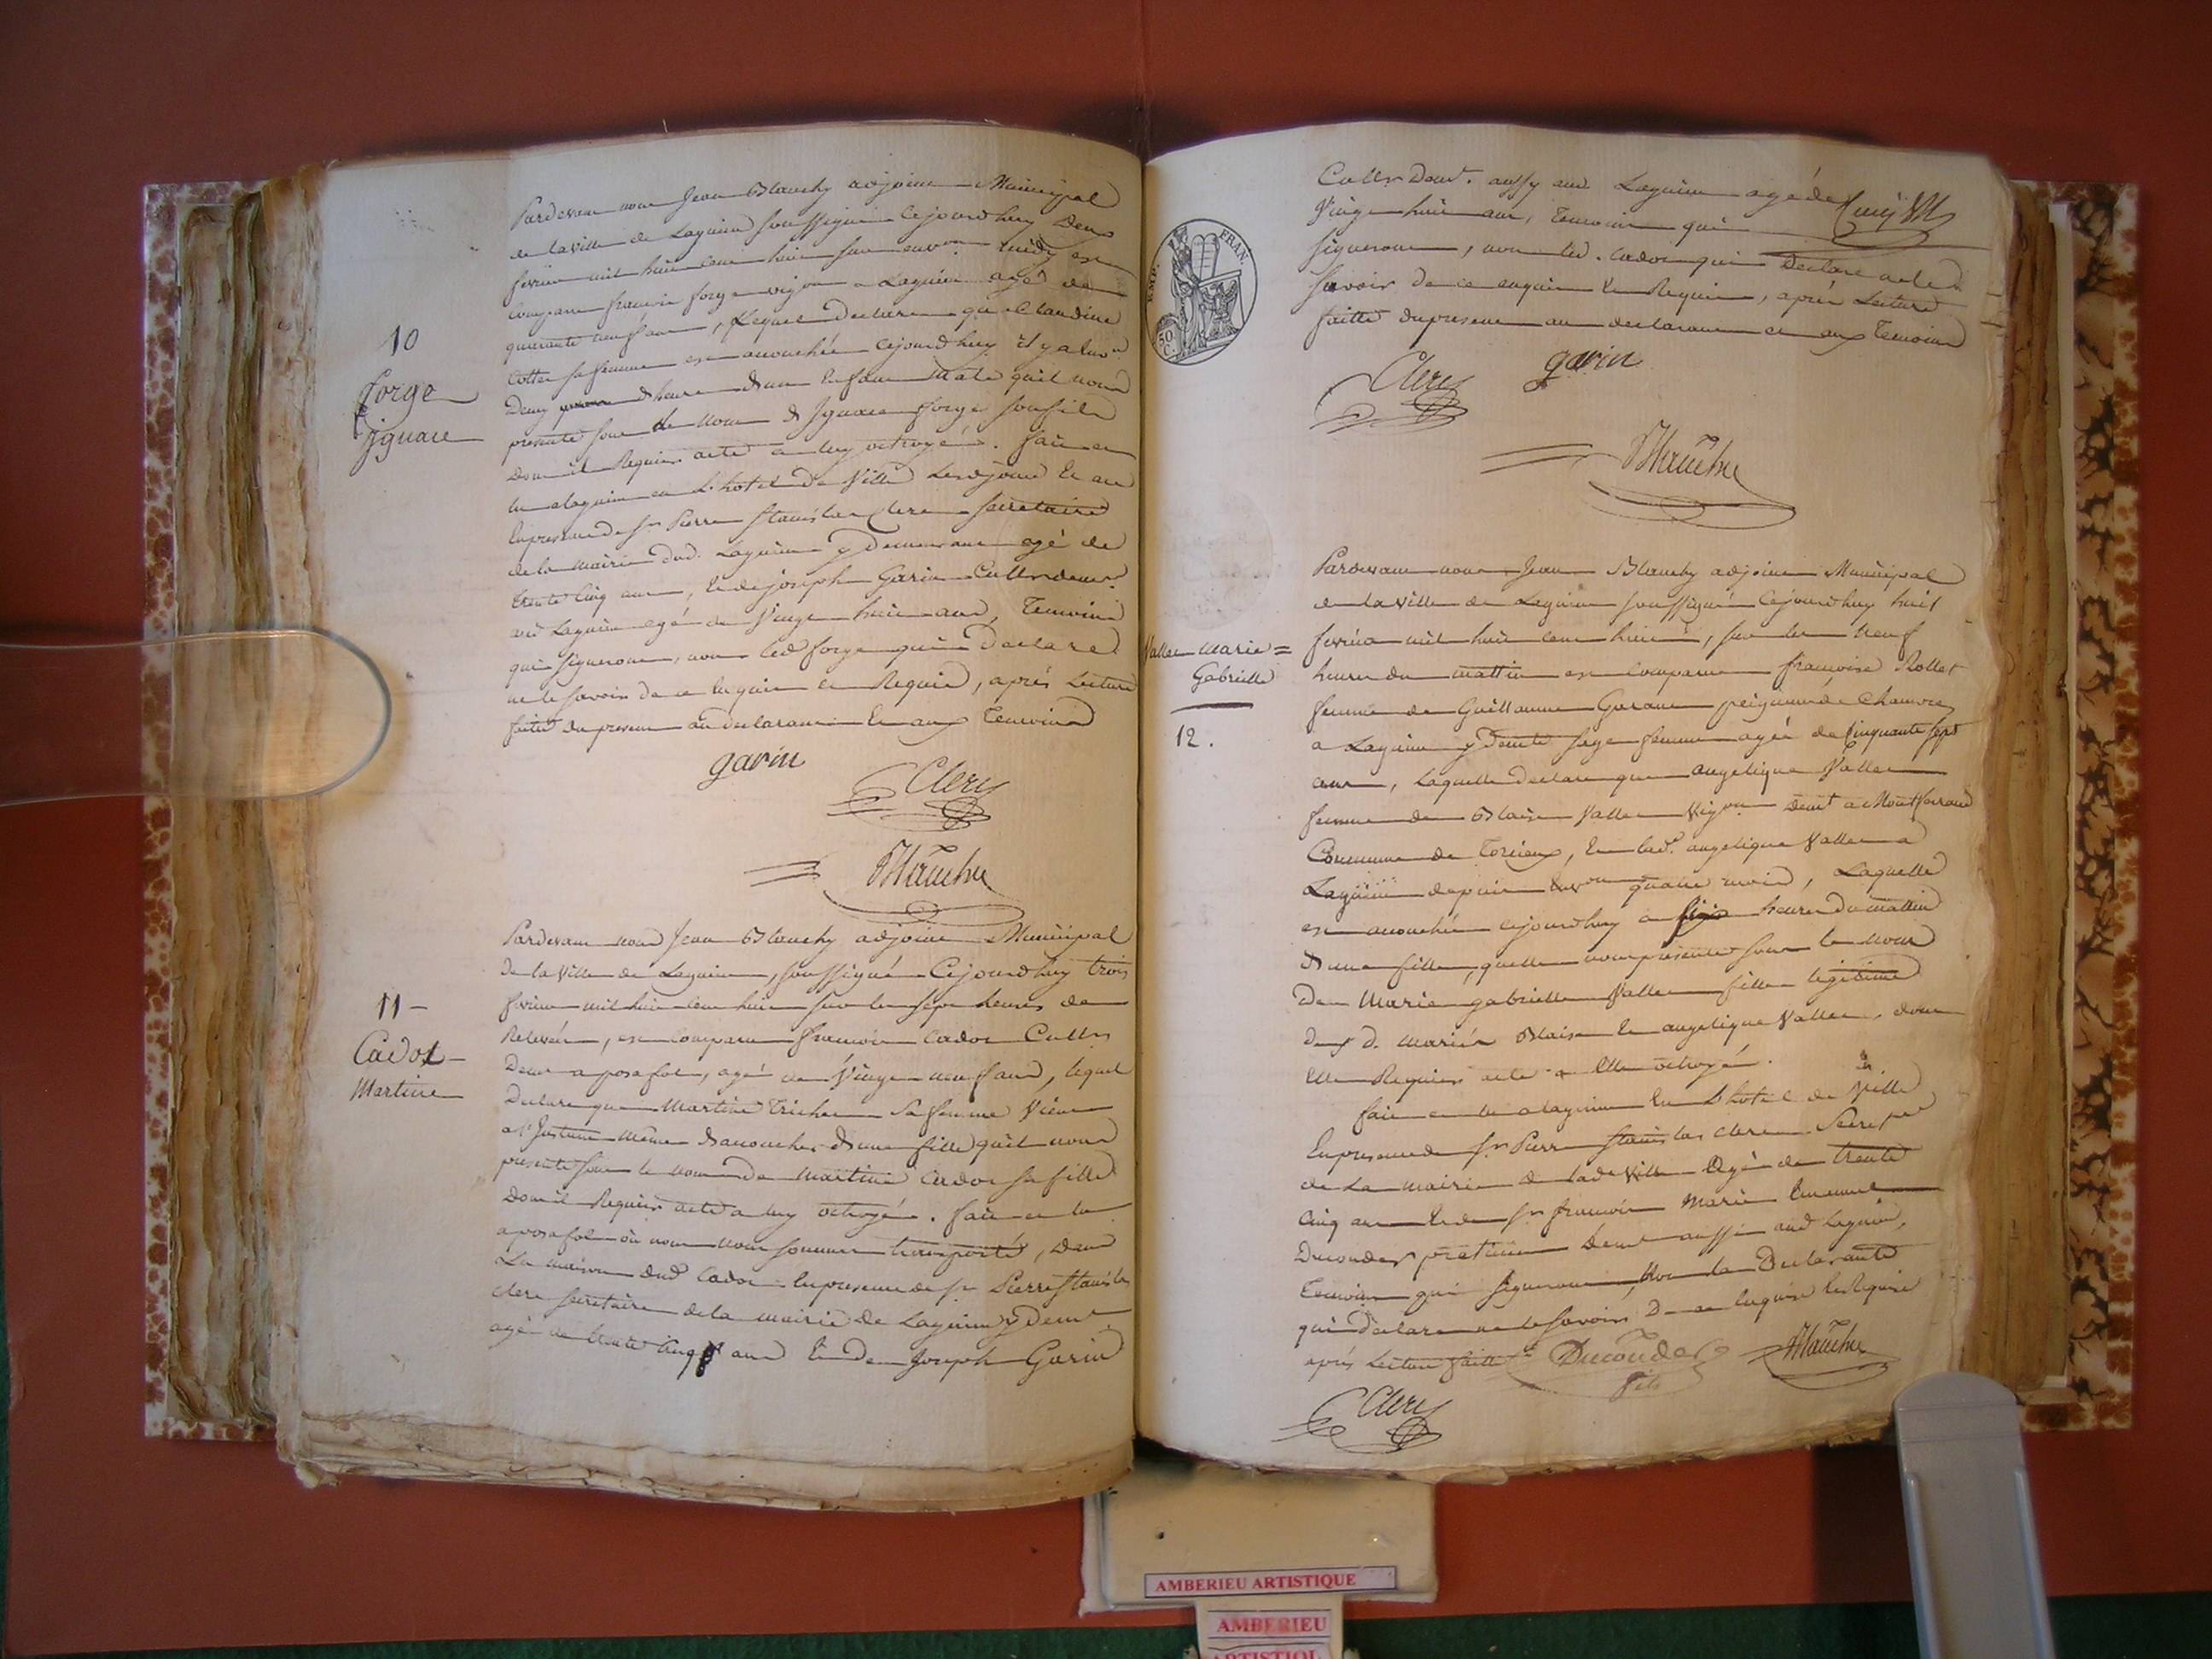 10
forge
jgnace
Pardevant nous Jean Blanchy adjoint Municipal
de la ville de Lagnieu soussigné Cejourdhuy Deux
fevrier mil huit cent huit sur environ midy est
comparu francois forge vigon a Lagnieu agé de
quarante neuf ans, Lequel Declare que Claudine
Cottet sa femme est accouchée cejourdhuy il y a
Demy d'heure d'un Enfant Male qu'il nous
presente sous le nom d'Ignace forge son fils
Dont il Requier acte a luy octroyé. fait et
lu a lagnieu en L'hotel De Ville Lesd jour et an
En presence de Sr Pierre Stanislas Clerc Secretaire
de la mairie dud. Lagnieu y Demeurant agé de
trente Cinq ans, et de joseph Garin Cultr demt
aud Lagnieu agé de Vingt huit ans, Temoins
qui signeront, non led forge qui Declare
ne le savoir de ce enquis et Requis, après Lecture
faitte du present au declarant et aux Temoins
garin
Clerc
Blanchy
11
Cadot
Martine
Pardevant nous Jean Blanchy adjoint Municipal
De la Ville de Lagnieu, soussigné Cejourdhuy trois
fevrier mil huit cent huit sur les sept heures de
Relevée, est comparu francois Cadot Cultr
Demt a posafol, agé de Vingt neuf ans, lequel
Declare que Martine Trichet Sa femme Vient
a l'Instant même D'accoucher d'une fille qu'il nous
presente sous le nom de Martine Cadot sa fille
Dont il Requier acte a luy octroyé. fait et lu
a posafol où nous nous sommes transporté, Dans
La maison dud Cadot En presence de Sr Pierre Stanislas
clerc secretaire de la mairie de Lagnieu y Demt
agé de trente Cinq ans et de Joseph Garin
EMP. FRAN.
50 C.
Cultr Demt. aussy aud Lagnieu agé de
Vingt huit ans, Temoins qui
signeront, non led. Cadot qui Declare ne le
savoir de ce enquis et Requis, après Lecture
faitte du present au declarant et aux Temoins
Clerc
garin
Blanchy
Vallet Marie =
Gabrielle
12.
Pardevant nous Jean Blanchy adjoint Municipal
de la ville de Lagnieu soussigné Cejourdhuy huit
fevrier mil huit cent huit, sur les Neuf
heures du mattin est comparue francoise Rollet
femme de Guillaume Garant peigneur de Chanvre
a Lagnieu y Demte sage femme agée de Cinquante sept
ans, Laquelle declare que angelique Vallet
femme de Blaise Vallet Vigon Demt a Montferrand
Commune de Torcieu, et lade. angelique Vallet a
Lagnieu depuis envon quatre mois, Laquelle
est accouchée cejourdhuy a six heures du mattin
d'une fille, quelle nous presente sous le nom
De Marie gabrielle Vallet fille legitime
des d. mariés Blaise et angelique Vallet, dont
elle Requier acte a Elle octroyé.
fait et lu a lagnieu En L'hotel de Ville
En presence de Sr Pierre Stanislas clerc Secretre
de La mairie de lade Ville Agé de trente
Cinq ans et de Sr francois Marie
Ducouder praticien Demt aussi aud Lagnieu,
Temoins qui signeront, Non la Declarante
qui declare ne le savoir De ce enquise et Requise
après Lecture faitte
Ducouder
fils
Blanchy
Clerc
AMBERIEU ARTISTIQUE
AMBERIEU
ARTISTIQU